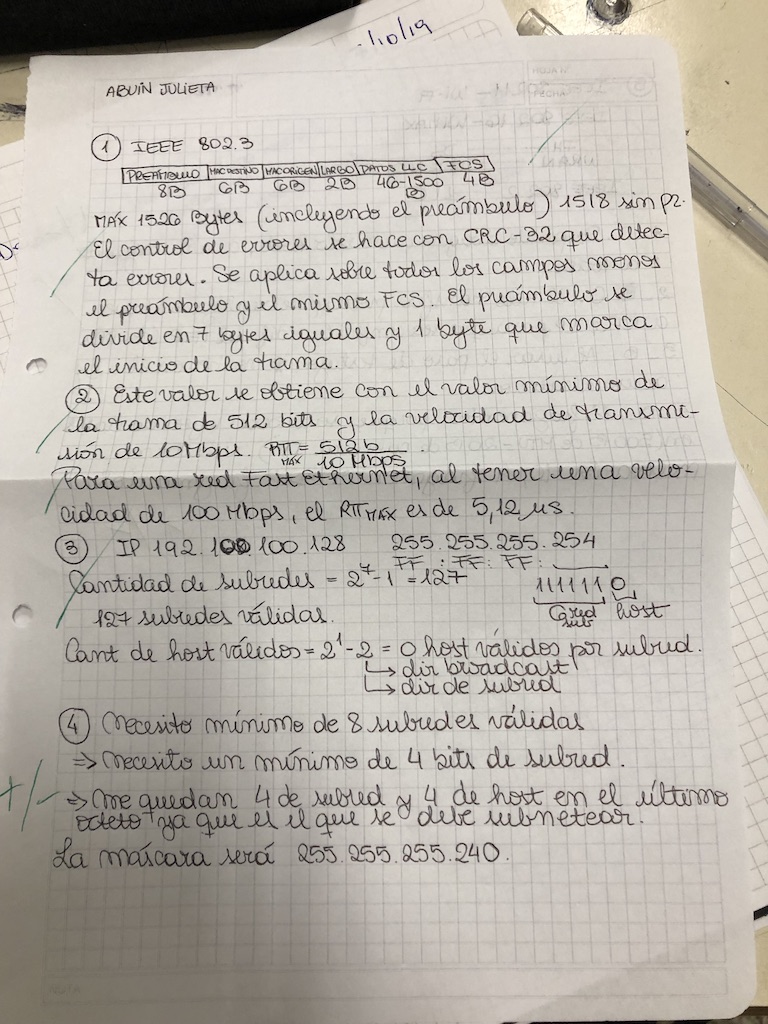 /10/19
ABUIN JULIETA
① IEEE 802.3
PREÁMBULO | MAC DESTINO | MAC ORIGEN | LARGO | DATOS LLC | FCS
8B 6B 6B 2B 46-1500 B 4B
MAX 1526 Bytes (incluyendo el preámbulo) 1518 sin pr.
El control de errores se hace con CRC-32 que detec-
ta errores. Se aplica sobre todos los campos menos
el preámbulo y el mismo FCS. El preámbulo se
divide en 7 bytes iguales y 1 byte que marca
el inicio de la trama.
② Este valor se obtiene con el valor mínimo de
la trama de 512 bits y la velocidad de transmi-
sión de 10 Mbps. RTT MAX = 512b / 10 Mbps .
Para una red Fast Ethernet, al tener una velo-
cidad de 100 Mbps, el RTT MAX es de 5,12 μs.
③ IP 192.100.100.128 255.255.255.254
FF : FF : FF :
Cantidad de subredes = 2⁷-1 = 127 1111111 0
127 subredes válidas. sub host
Cant de host válidos = 2¹-2 = 0 host válidos por subred.
↳ dir broadcast
↳ dir de subred
④ Necesito mínimo de 8 subredes válidas
⇒ Necesito un mínimo de 4 bits de subred.
+/- ⇒ Me quedan 4 de subred y 4 de host en el último
octeto ya que es el que se debe subnetear.
La máscara será 255.255.255.240.